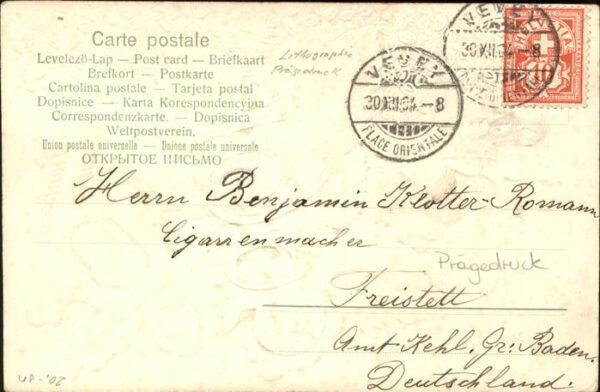 Carte postale
Levelezö-Lap — Post card — Briefkaart
Brefkort — Postkarte
Cartolina postale — Tarjeta postal
Dopisnice — Karta Korespondencyjna
Correspondenzkarte. — Dopisnica
Weltpostverein.
Union postale universelle — Unione postale universale
ОТКРЫТОЕ ПИСЬМО
Lithographie
Prägedruck
VEVEY
30.XII.04.–8
PLACE ORIENTALE
VEVEY
30.XII.04.–8
HELVETIA
10
Herrn Benjamin Klotter-Romann
Cigarrenmacher
Prägedruck
Freistett
Amt Kehl, Gr: Baden.
Deutschland.